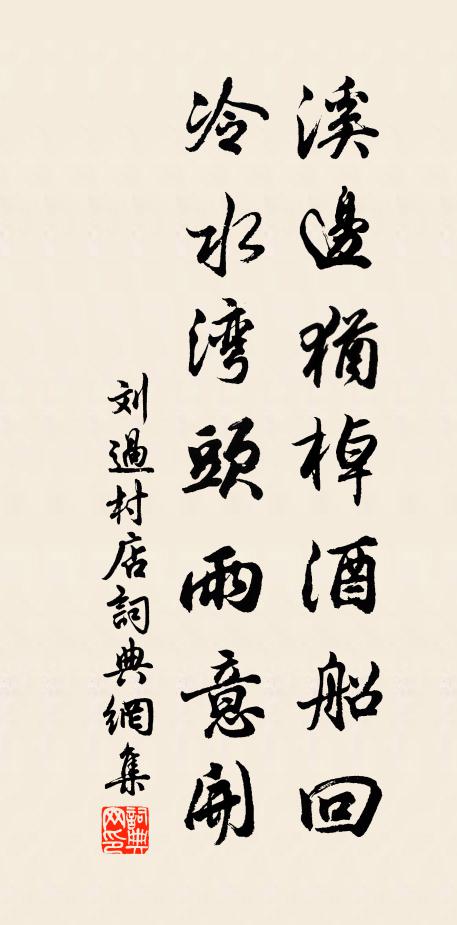 溪邊猶棹酒船回
冷水湾頭雨意開
刘過村店詞典網集
詞典网印